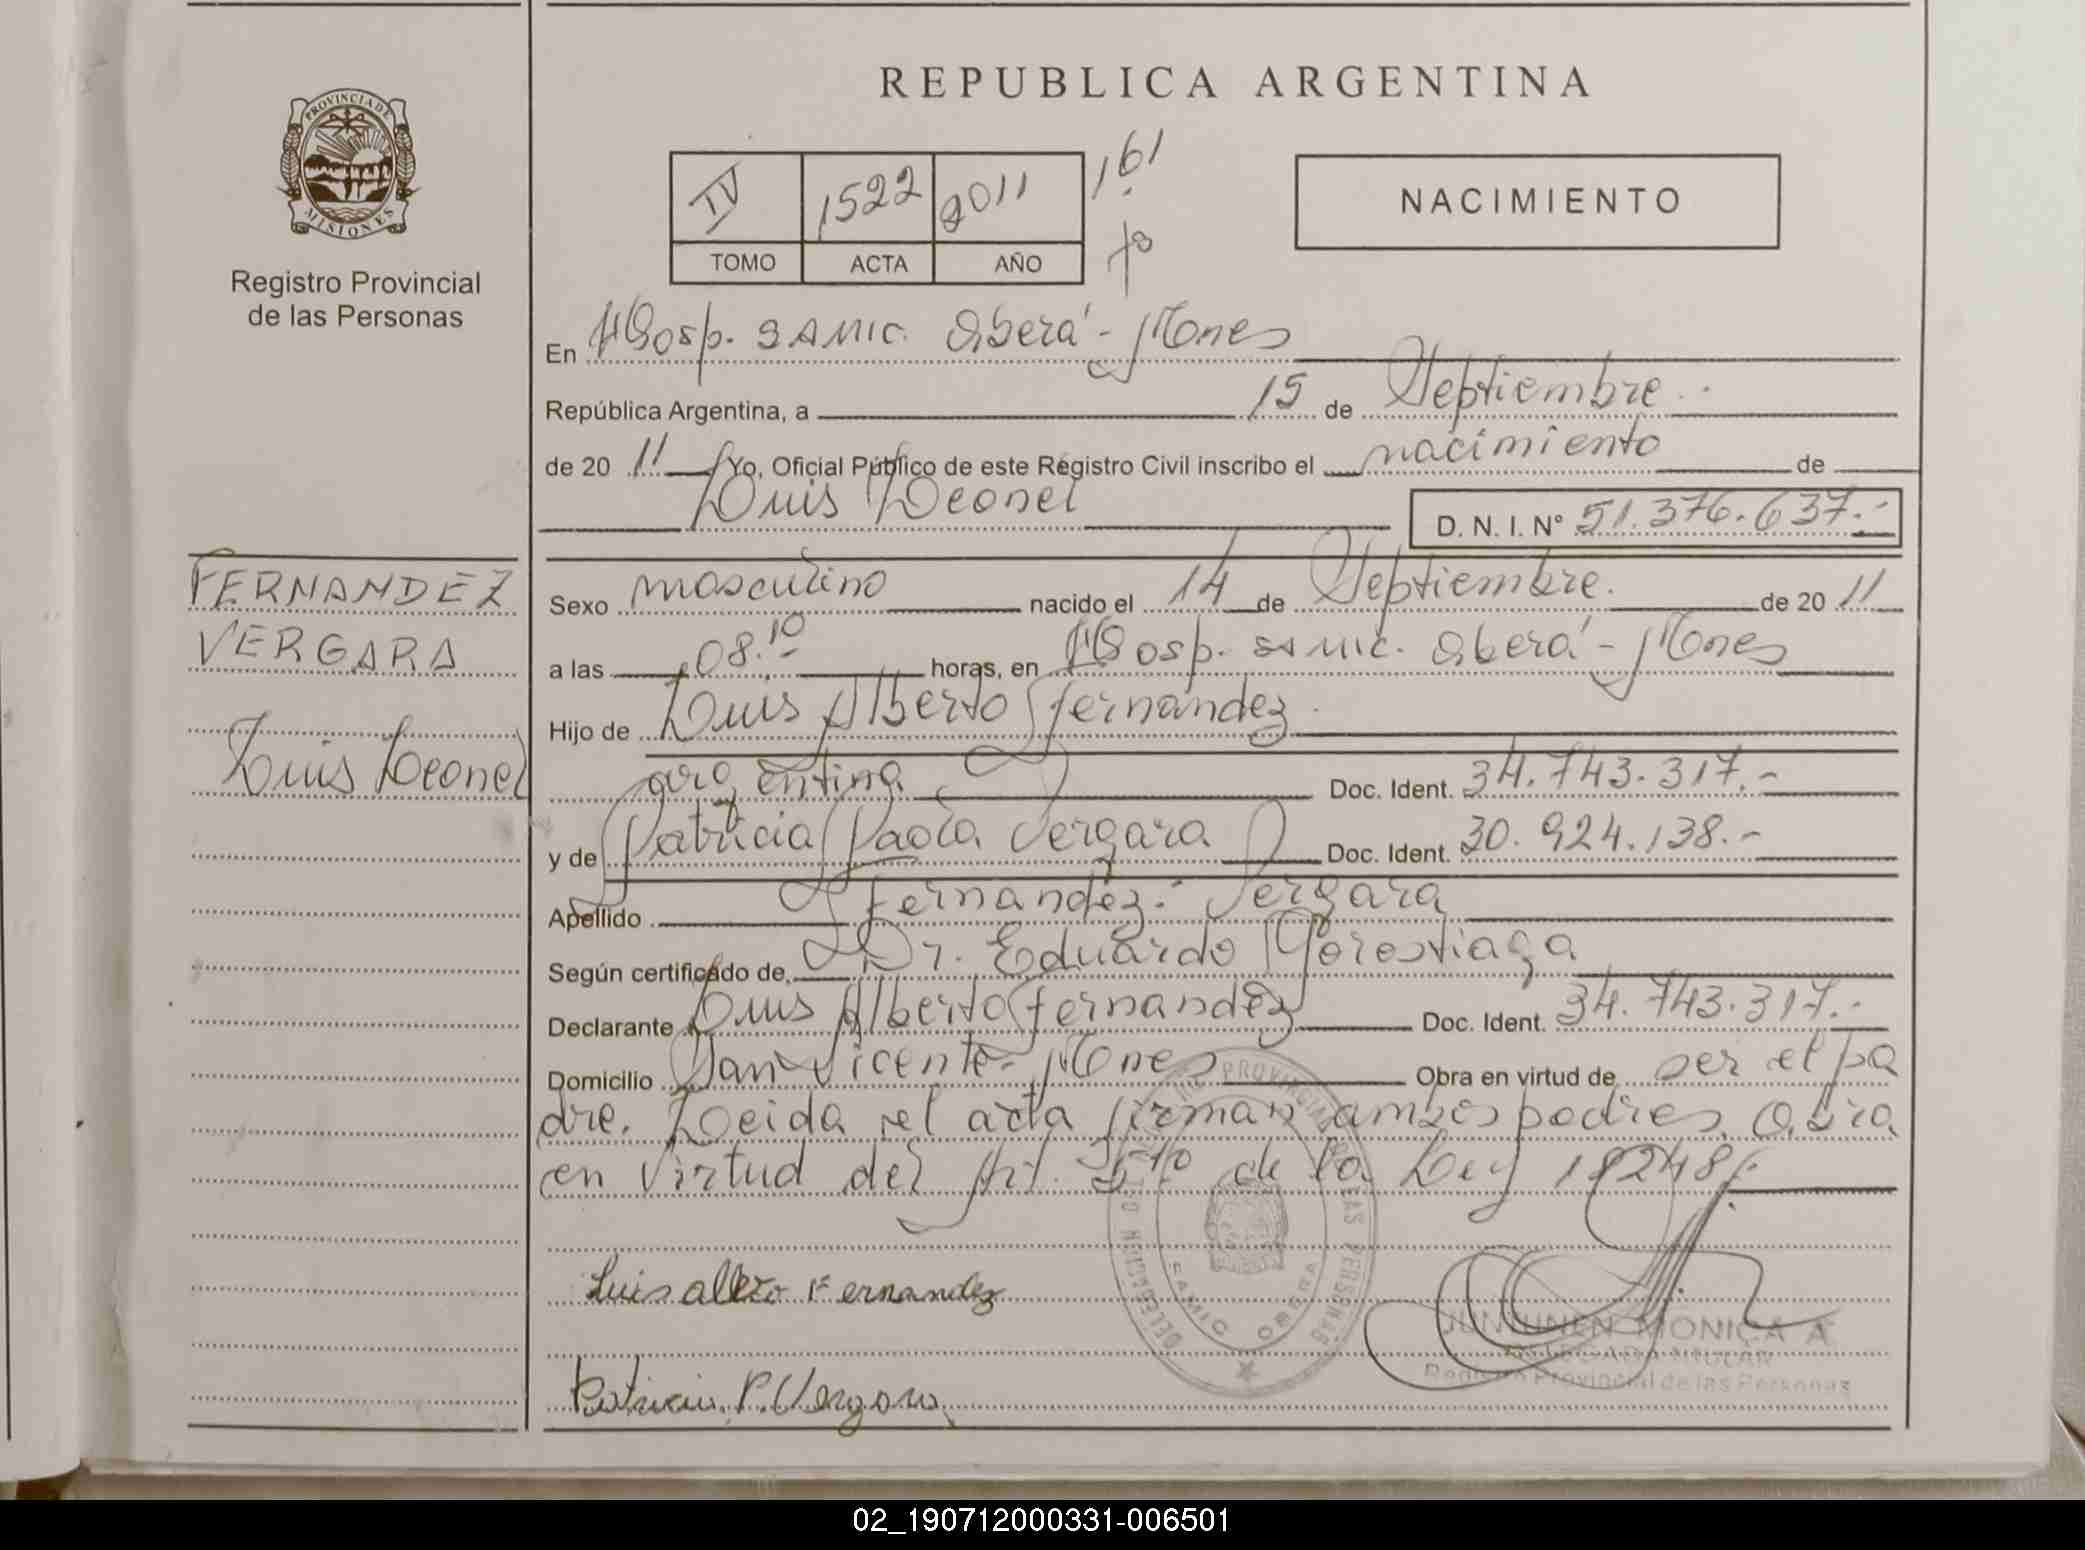 PROVINCIA DE
MISIONES
Registro Provincial
de las Personas
FERNANDEZ
VERGARA
Luis Leonel
REPUBLICA ARGENTINA
IV 1522 2011 161
TOMO ACTA AÑO fº
NACIMIENTO
En Hosp. SAMIC. Oberá - Mones
República Argentina, a 15 de Septiembre.
de 20 11 Yo, Oficial Público de este Registro Civil inscribo el nacimiento de
Luis Leonel D. N. I. Nº 51.376.637.-
Sexo masculino nacido el 14 de Septiembre. de 20 11
a las 08.10 horas, en Hosp. SAMIC. Oberá - Mones
Hijo de Luis Alberto Fernandez.
argentina Doc. Ident. 34.743.317.-
y de Patricia Paola Vergara Doc. Ident. 30.924.138.-
Apellido Fernandez. Vergara
Según certificado de Dr. Eduardo Gorostiaga
Declarante Luis Alberto Fernandez Doc. Ident. 34.743.317.-
Domicilio San Vicente - Mones Obra en virtud de ser el pa
dre. Leida el acta firman ambos padres. Obra
en virtud del Art. 5to de la Ley 18248.
Luis Fernandez
Patricia P. Vergara
DELEGACION REGISTRO PROVINCIAL DE LAS PERSONAS
SAMIC OBERA
JUNTUNEN MONICA A
DELEGADA TITULAR
Registro Provincial de las Personas
02_190712000331-006501